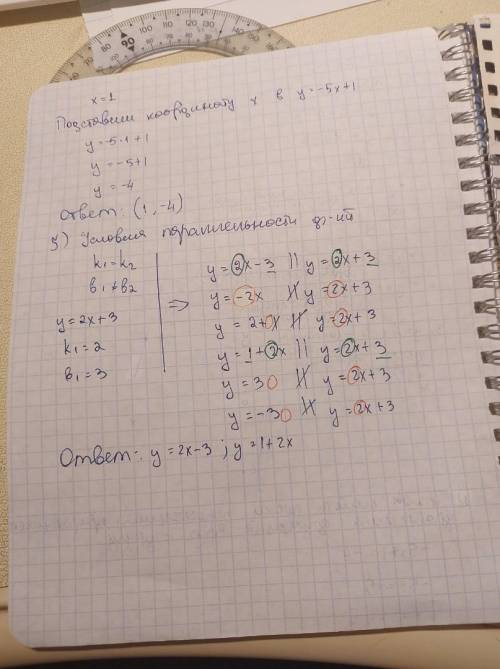 x=1
Подставим координату x в y=-5x+1
y=-5·1+1
y=-5+1
y=-4
Ответ: (1, -4)
5) Условия параллельности ф-ий
k₁=k₂
b₁≠b₂
y=2x+3
k₁=2
b₁=3
⇒
y=2x-3 || y=2x+3
y=-2x ∦ y=2x+3
y=2+x ∦ y=2x+3
y=1+2x || y=2x+3
y=30 ∦ y=2x+3
y=-30 ∦ y=2x+3
Ответ: y=2x-3; y=1+2x